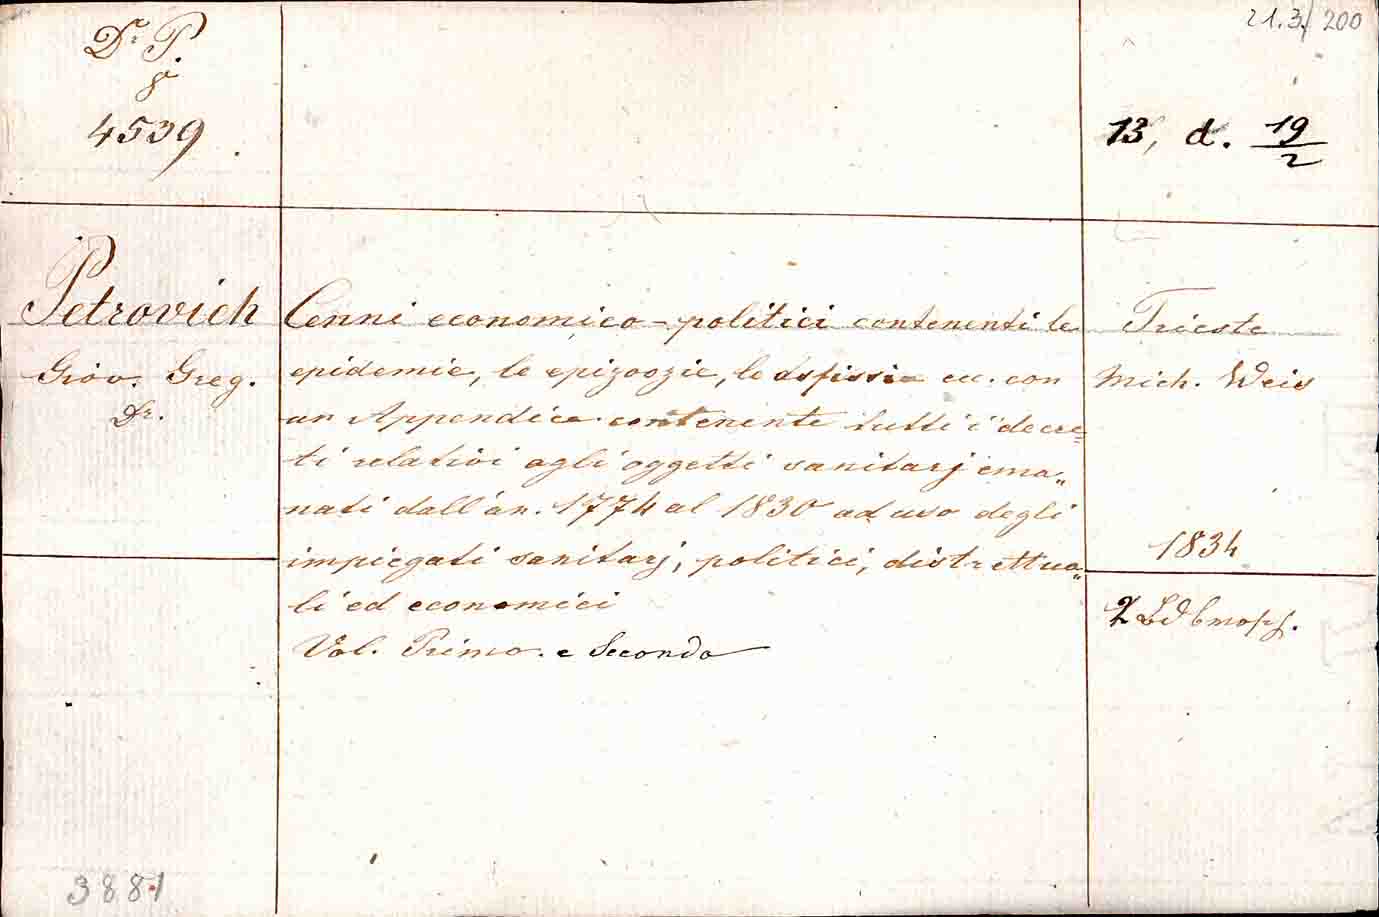 Dr. P.
8
4539
21.3./200
13, d. 19/2
Petrovich
Giov. Greg.
Dr.
Cenni economico-politici contenenti le
epidemie, le epizoozie, le asfissie ecc. con
un Appendice contenente tutti i decre=
ti relativi agli oggetti sanitarj ema„
nati dall'an. 1774 al 1830 ad uso degli
impiegati sanitarj, politici, distrettua„
li ed economici
Vol. Primo. e Secondo
Trieste
Mich. Weis
1834
2
3881